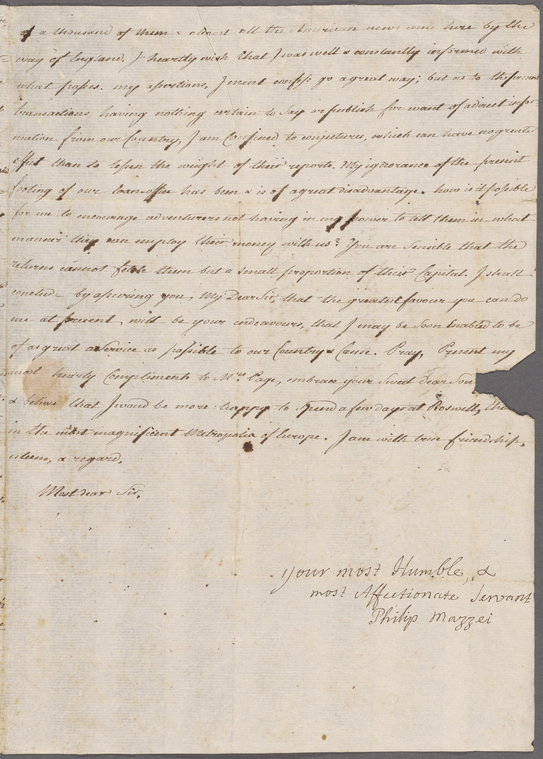 of a thousand of them. almost all the American news come here by the
way of England. I heartly wish that I was well & constantly informed with
what passes. my assertions, I must confess go a great way; but as to the
transactions, having nothing certain to say or publish for want of a direct infor-
mation from our Country, I am Confined to conjectures, which can have no greater
effect than to lessen the weight of their reports. My ignorance of the present
footing of our loan-office has been & is of a great disadvantage. how is it possible
for me to encourage adventurers not having in my power to tell them in what
manner they can employ their money with us? You are Sensible that the
returns cannot fetch them but a small proportion of their Capital. I shall
conclude by assuring you, My Dear Sir, that the greatest favour you can do
me at present, will be your endeavours, that I may be soon Enabled to be
of as great a Service as possible to our Country & Cause. Pray, Present my
most hearty Compliments to Mrs. Page, embrace your Sweet dear Sons
& believe that I woud be more happy to Spend a few days at Roswell, than
in the most magnificent Metropolis of Europe. I am with true friendship,
esteem, & regard,
Most dear Sir,
your most Humble, &
most Affectionate Servant
Philip Mazzei